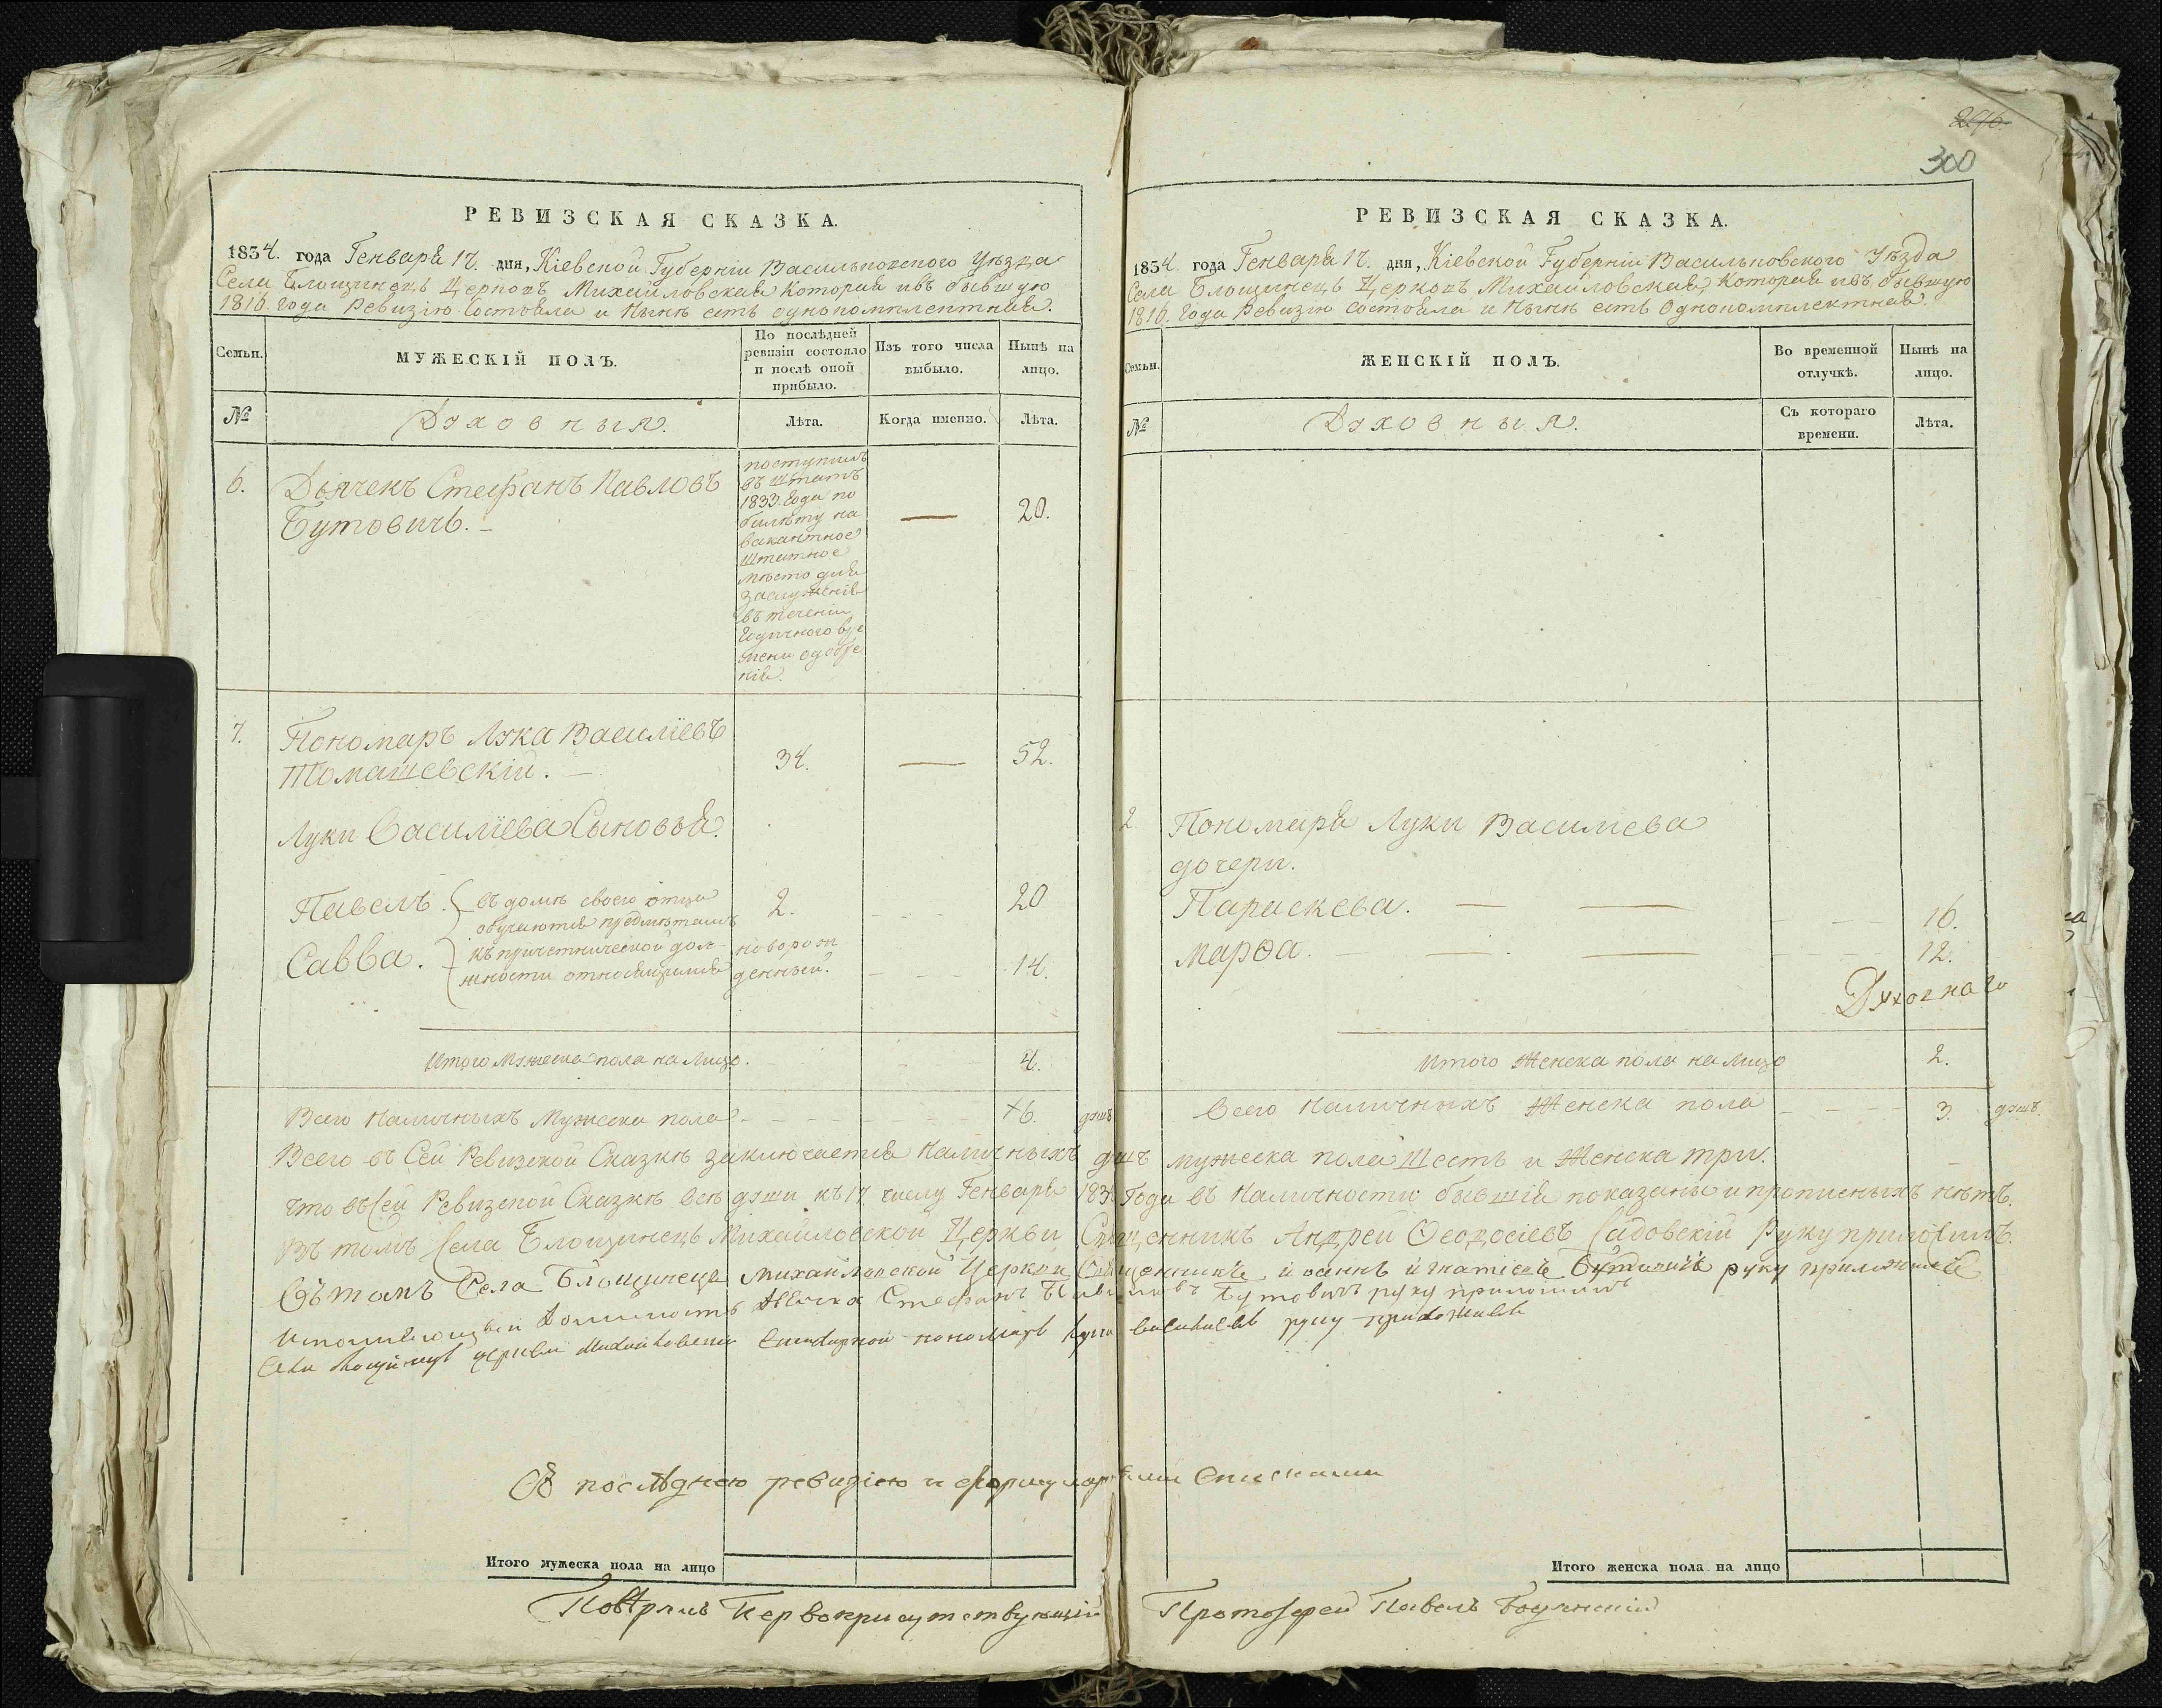 РЕВИЗСКАЯ СКАЗКА.
1834. года Генваря 17. дня, Кіевской Губерніи Васильковского Уѣзда
Села Блощинецъ Церковь Михайловская которая и въ бывшую
1816. Года Ревизію Состояла и Нынѣ есть однокомплектная.
Семьи.
МУЖЕСКІЙ ПОЛЪ.
По послѣдней
ревизіи состояло
и послѣ оной
прибыло.
Изъ того числа
выбыло.
Нынѣ на
лицо.
№
Духовныя.
Лѣта.
Когда именно.
Лѣта.
6.
Дьячекъ Стефанъ Павловъ
Бутовичъ.
поступилъ
въ штатъ
1833. Года по
билѣту на
вакантное
штатное
мѣсто для
заслуженія
въ теченіи
Годичного вре
мени одобре
нія.
—
20.
7.
Пономаръ Лука Василіевъ
Томашевскій. —
34.
—
52.
Луки Василіева Сыновья.
Павелъ.
Савва.
въ домѣ своего отца
обучаются предмѣтамъ
къ причетнической дол-
жности относящимся
2.
20
новорож
денный.
14.
Итого Мужеска пола на Лицо.
4.
Всего Наличныхъ Мужеска пола
6. душъ
РЕВИЗСКАЯ СКАЗКА.
296.
300
1834 года Генваря 17. дня, Кіевской Губерніи Васильковского Уѣзда
Села Блощинецъ Церковь Михайловская, Которая и въ бывшую
1816. Года Ревизію состояла и Нынѣ есть Однокомплектная.
Семьи.
ЖЕНСКІЙ ПОЛЪ.
Во временной
отлучкѣ.
Нынѣ на
лицо.
№
Духовныя.
Съ котораго
времени.
Лѣта.
2
Пономаря Луки Василіева
дочери.
Параскева. — —
16.
Марѳа. — — —
12.
Духовнаго
Итого Женска пола на Лицо
2.
Всего Наличныхъ Женска пола
3. душъ.
Всего въ Сей Ревизской Сказкѣ заключается Наличныхъ душъ мужеска пола Шесть и Женска три.
что въ Сей Ревизской Сказкѣ всѣ души къ 17 числу Генваря 183 Года въ Наличности бывшія показаны и прописныхъ нѣтъ.
Въ томъ Села Блощинецъ Михайловской Церкви Священникъ Андрей Ѳеодосіевъ Садовскій Руку приложилъ.
Въ томъ Села Блощинецъ Михайловской Церкви Священникъ іоаннъ игнатіевъ Бутовичъ руку приложилъ
Исполняющый должность Дьячка Стефанъ Павловъ Бутовичъ руку приложилъ
Села Блощинецъ церкви Михайловской пономарь Лука василіевъ руку приложилъ
Съ послѣднею ревизіею и формулярными списками
Итого мужеска пола на лицо
Итого женска пола на лицо
Повѣрялъ Первоприсутствующій Протоіерей Павелъ